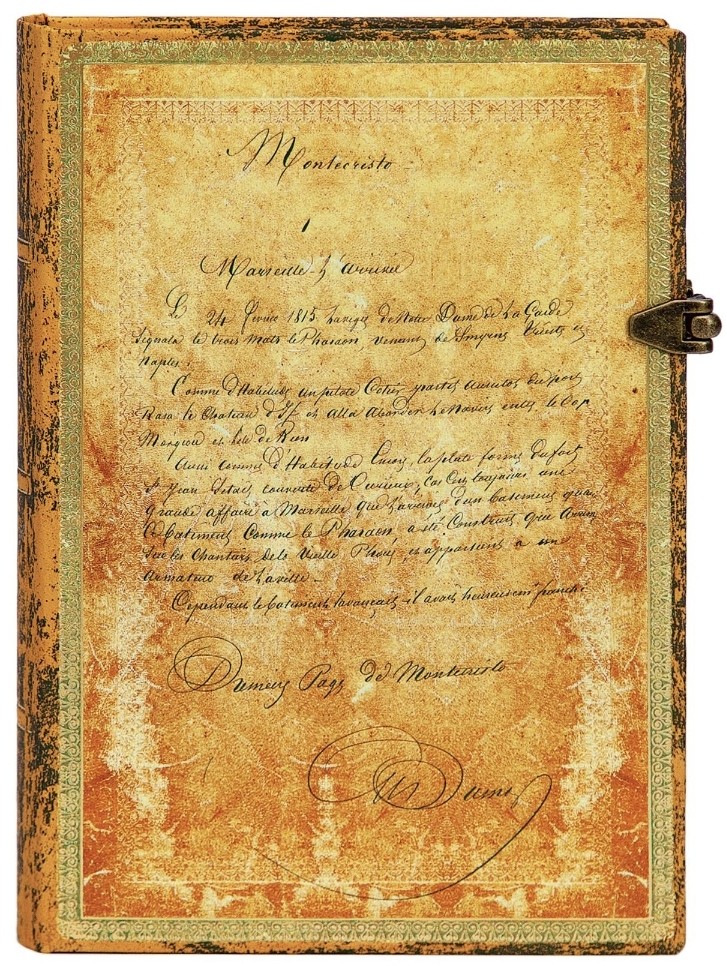 Montecristo
1
Marseille - L'arrivée
Le 24 février 1815. La vigie de Notre Dame de La Garde
Signala le trois mats le Pharaon venant de Smyrne Trieste et
Naples.
Comme d'Habitude un pilote Cotier partit aussitot du port
Rasa le Chateau d'If et alla aborder le Navire entre le Cap
Morgiou et l'ile de Rion
Aussi comme d'Habitude encore, la plate forme du fort
St Jean s'etait couverte de Curieux, car c'est toujours une
grande affaire à Marseille que l'arrivée d'un batiment quand
ce batiment Comme le Pharaon a été Construit, gréé, Arrimé
Sur les Chantiers de la Vieille Phocée, et appartient à un
Armateur de la ville -
Cependant le batiment s'avançait - il avait heureusement franchi
Page de Montecristo
Alex Dumas